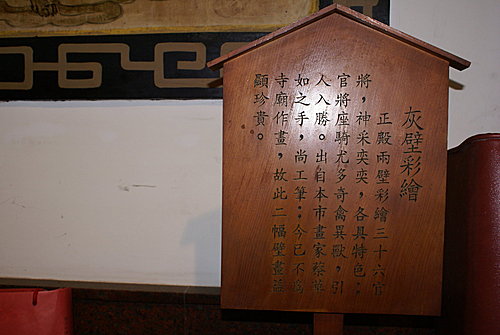 灰壁彩繪
正殿兩壁彩繪三十六官
將,神采奕奕,各具特色;
官將座騎尤多奇禽異獸,引
人入勝。出自本市畫家蔡草
如之手,尚工筆;今已不為
寺廟作畫,故此二幅壁畫益
顯珍貴。